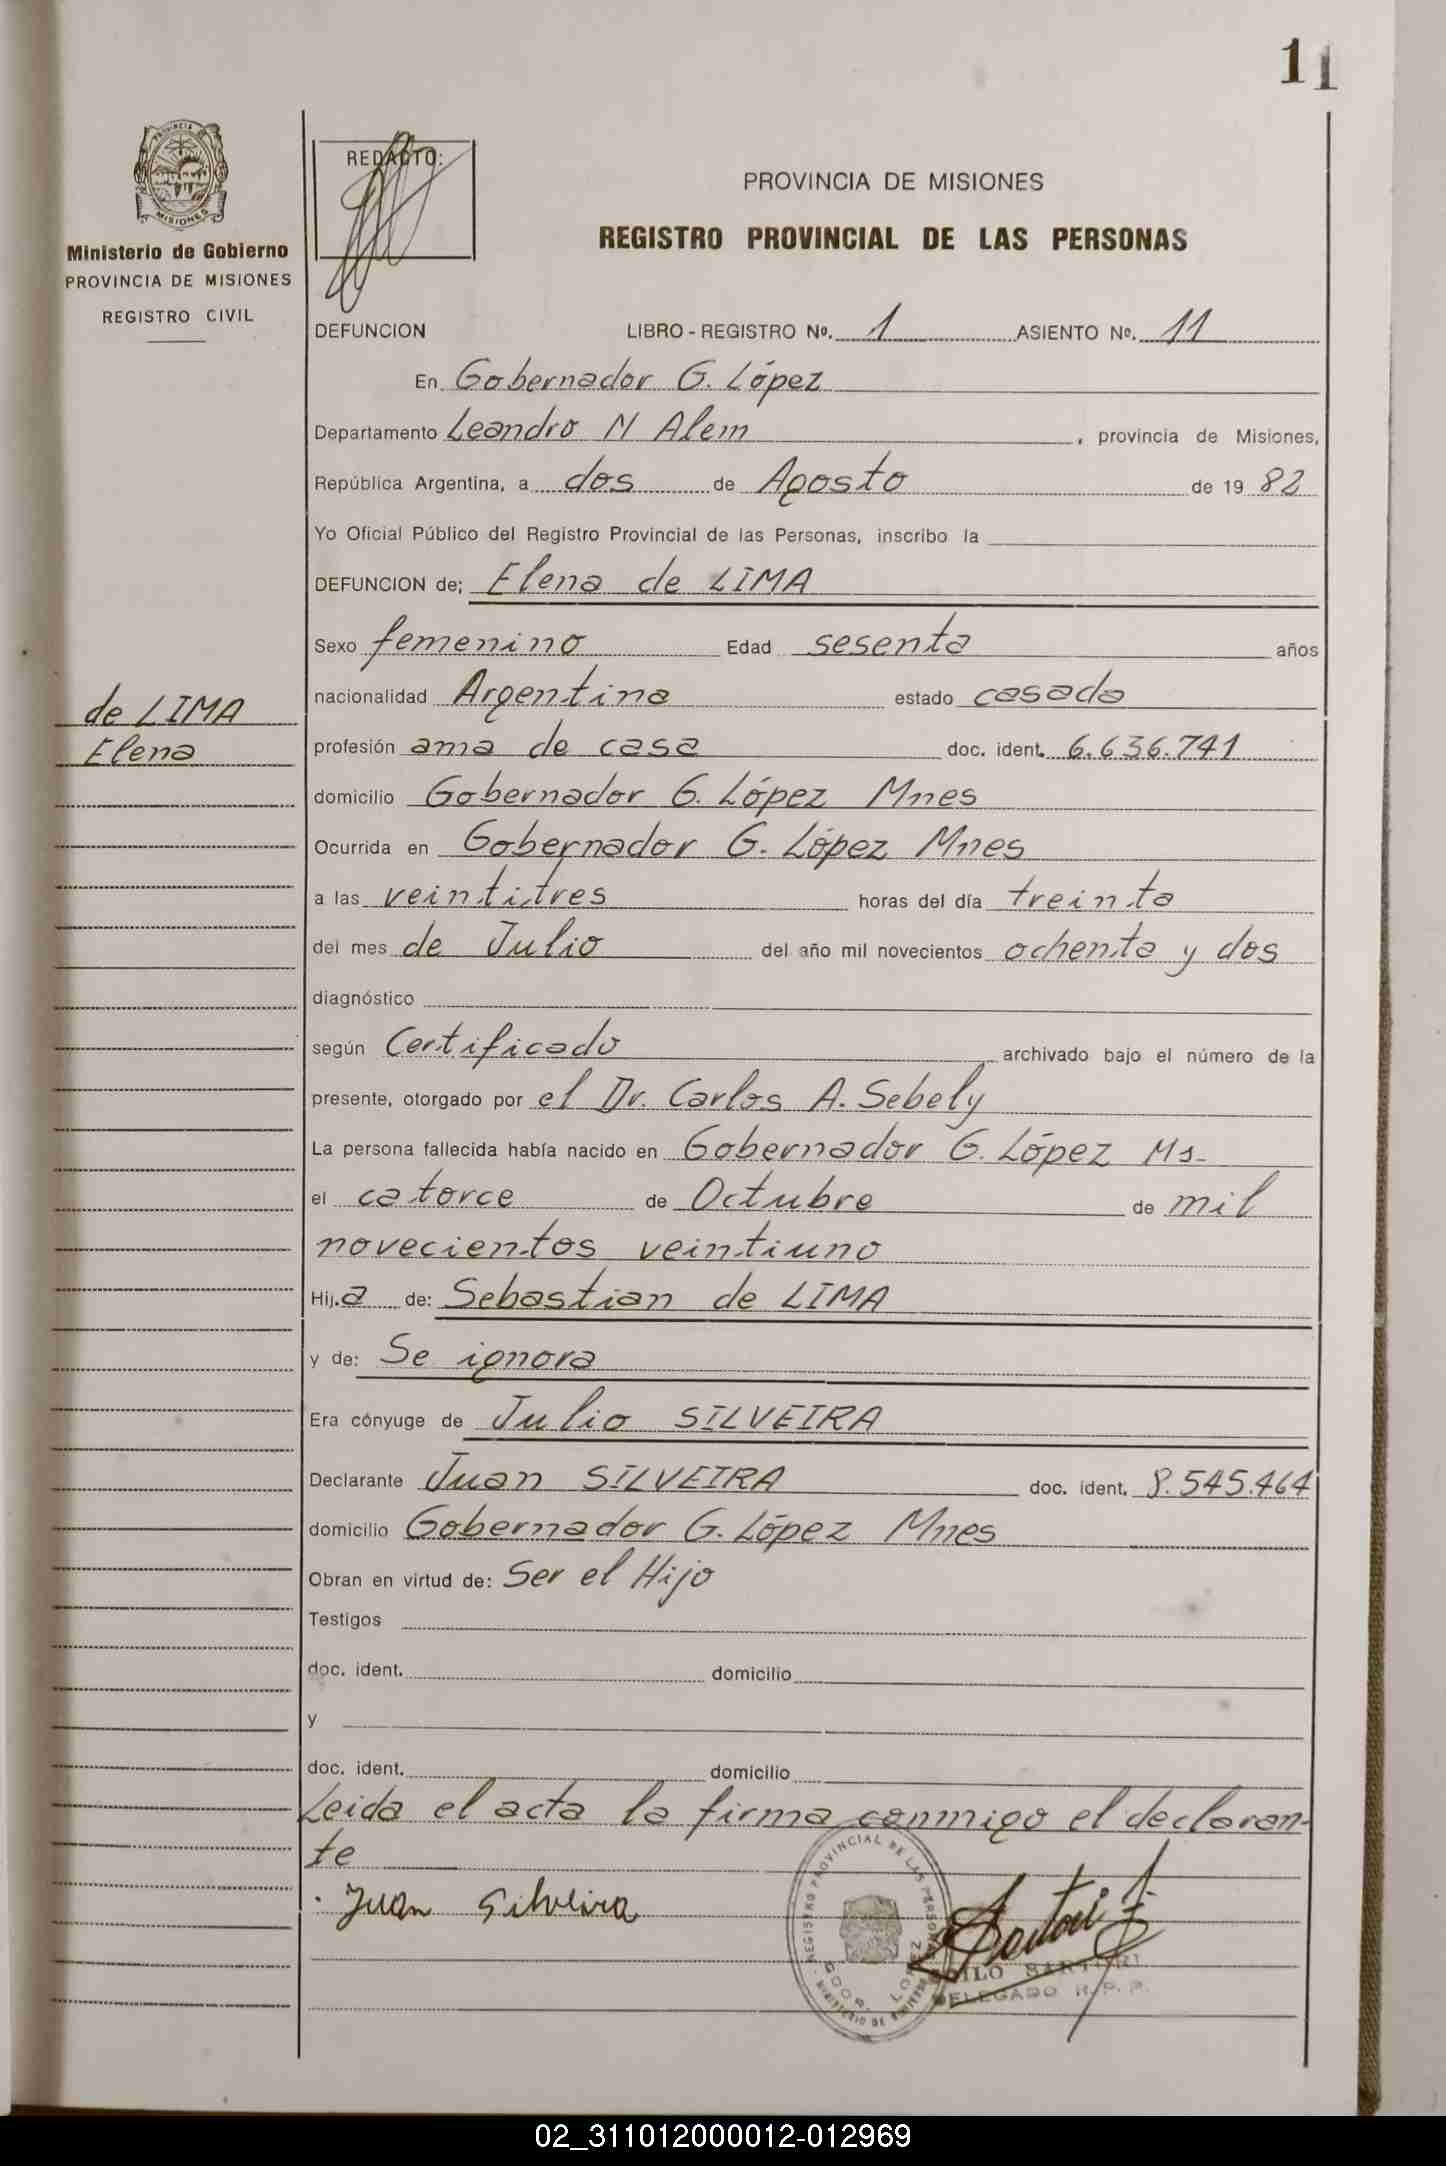 11
PROVINCIA DE
MISIONES
Ministerio de Gobierno
PROVINCIA DE MISIONES
REGISTRO CIVIL
REDACTO:
PROVINCIA DE MISIONES
REGISTRO PROVINCIAL DE LAS PERSONAS
DEFUNCION LIBRO - REGISTRO Nº. 1 ASIENTO Nº. 11
En Gobernador G. López
Departamento Leandro N Alem , provincia de Misiones,
República Argentina, a dos de Agosto de 19 82
Yo Oficial Público del Registro Provincial de las Personas, inscribo la
DEFUNCION de; Elena de LIMA
Sexo femenino Edad sesenta años
de LIMA
Elena
nacionalidad Argentina estado casada
profesión ama de casa doc. ident. 6.636.741
domicilio Gobernador G. López Mnes
Ocurrida en Gobernador G. López Mnes
a las veintitres horas del día treinta
del mes de Julio del año mil novecientos ochenta y dos
diagnóstico
según Certificado archivado bajo el número de la
presente, otorgado por el Dr. Carlos A. Sebely
La persona fallecida había nacido en Gobernador G. López Ms-
el catorce de Octubre de mil
novecientos veintiuno
Hij.a de: Sebastian de LIMA
y de: Se ignora
Era cónyuge de Julio SILVEIRA
Declarante Juan SILVEIRA doc. ident. 8.545.464
domicilio Gobernador G. López Mnes
Obran en virtud de: Ser el Hijo
Testigos
doc. ident. domicilio
y
doc. ident. domicilio
Leida el acta la firma conmigo el declaran-
te
Juan Silveira
REGISTRO PROVINCIAL DE LAS PERSONAS
GDOR. LOPEZ
MINISTERIO DE GOBIERNO
SARTORI
DELEGADO R.P.P.
02_311012000012-012969